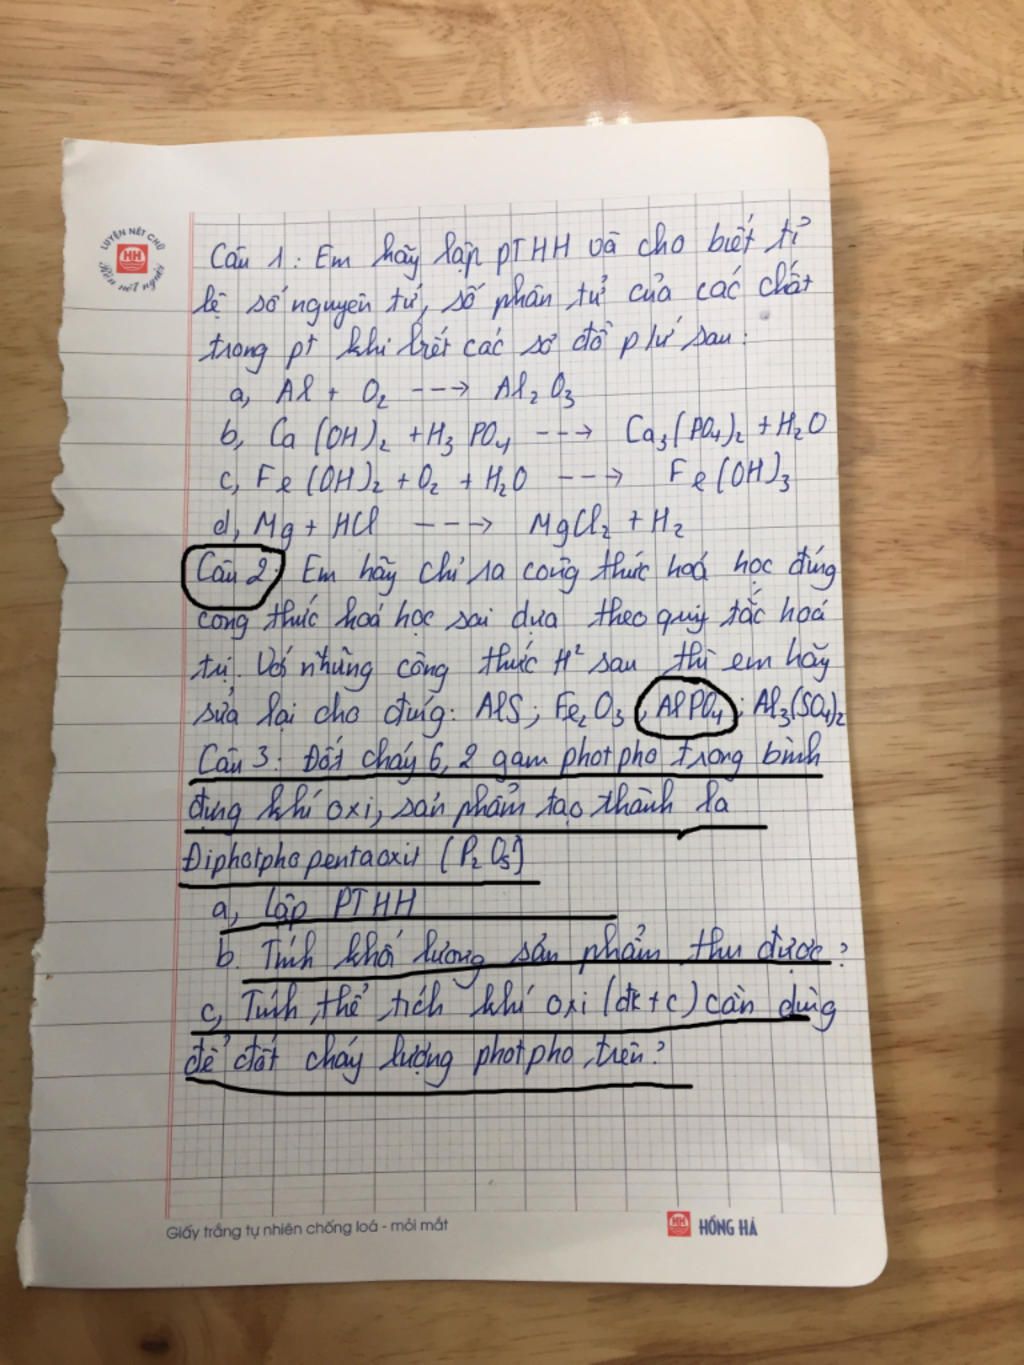 LUYỆN NÉT CHỮ
HH
Rèn nết người
Câu 1: Em hãy lập PTHH và cho biết tỉ
lệ số nguyên tử, số phân tử của các chất
trong pt khi biết các sơ đồ p/ứ sau:
a, Al + O₂ ---> Al₂O₃
b, Ca(OH)₂ + H₃PO₄ ---> Ca₃(PO₄)₂ + H₂O
c, Fe(OH)₂ + O₂ + H₂O ---> Fe(OH)₃
d, Mg + HCl ---> MgCl₂ + H₂
Câu 2: Em hãy chỉ ra công thức hoá học đúng
công thức hoá học sai dựa theo quy tắc hoá
trị. Với những công thức H² sau thì em hãy
sửa lại cho đúng: AlS; Fe₂O₃; AlPO₄; Al₃(SO₄)₂
Câu 3: Đốt cháy 6,2 gam photpho trong bình
đựng khí oxi, sản phẩm tạo thành la
Điphotpho pentaoxit (P₂O₅)
a, Lập PTHH
b. Tính khối lượng sản phẩm thu được?
c, Tính thể tích khí oxi (đktc) cần dùng
để đốt cháy lượng photpho trên?
Giấy trắng tự nhiên chống loá - mỏi mắt
HH HỒNG HÀ